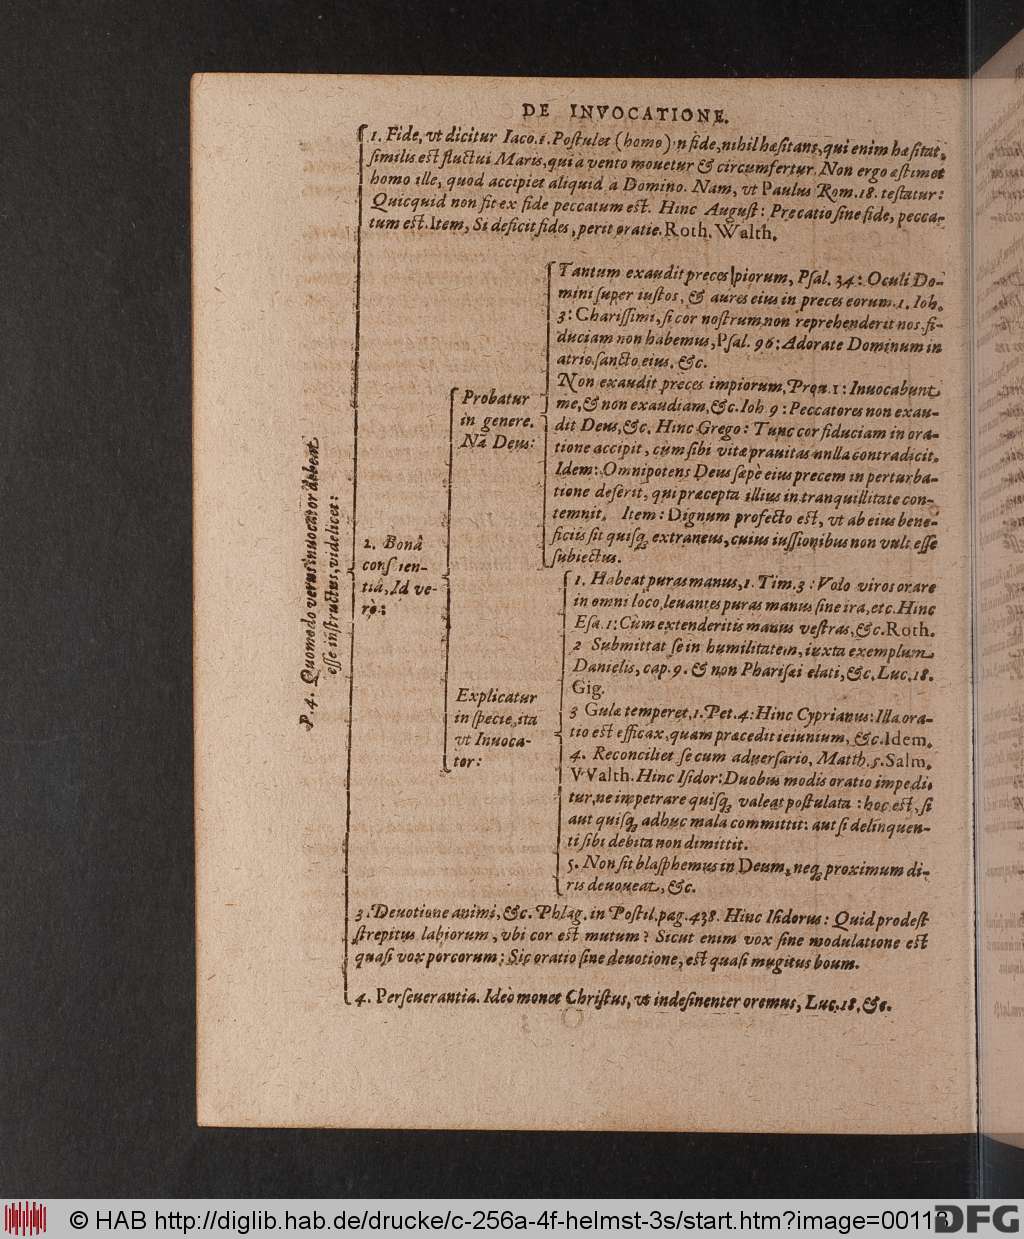 DE INVOCATIONE.
P. 4. Quomodo verus inuocator debeat
esse instructus, videlicet:
1. Fide, vt dicitur Iaco. 1. Postulet (homo) in fide, nihil hæsitans, qui enim hæsitat,
similis est fluctui Maris, qui à vento mouetur & circumfertur. Non ergo æstimet
homo ille, quod accipiet aliquid à Domino. Nam, vt Paulus Rom. 18. testatur:
Quicquid non fit ex fide peccatum est. Hinc August: Precatio sine fide, pecca-
tum est. Item, Si deficit fides, perit oratie. Roth. Walth.
2. Bonâ
conscien-
tiâ, Id ve-
rò:
Probatur
in genere.
Nã Deus:
Tantum exaudit preces piorum, Psal. 34: Oculi Do-
mini super iustos, & aures eius in preces eorum. 1. Ioh.
3: Charissimi, si cor nostrum non reprehenderit nos, fi-
duciam non habemus, Psal. 96: Adorate Dominum in
atrio sancto eius, &c.
Non exaudit preces impiorum, Prou. 1: Inuocabunt
me, & non exaudiam, &c. Ioh 9: Peccatores non exau-
dit Deus, &c. Hinc Grego: Tunc cor fiduciam in ora-
tione accipit, cum sibi vitæ prauitas nulla contradicit.
Idem: Omnipotens Deus sæpè eius precem in perturba-
tione deserit, qui præcepta illius in tranquillitate con-
temnit. Item: Dignum profecto est, vt ab eius bene-
ficiis sit quisq; extraneus, cuius iussionibus non vult esse
subiectus.
Explicatur
in specie, ita
vt Inuoca-
tor:
1. Habeat puras manus, 1. Tim. 3: Volo viros orare
in omni loco, leuantes puras manus sine ira, etc. Hinc
Esa. 1: Cùm extenderitis manus vestras, &c. Roth.
2 Submittat se in humilitatem, iuxta exemplum
Danielis, cap. 9. & non Pharisæi elati, &c. Luc. 18.
Gig.
3 Gulæ temperet, 1. Pet. 4: Hinc Cyprianus: Illa ora-
tio est efficax, quam præcedit ieiunium, &c. Idem.
4. Reconciliet se cum aduersario, Matth. 5. Salm.
VValth. Hinc Isidor: Duobus modis oratio impedi-
tur, ne impetrare quisq; valeat postulata: hoc est, si
aut quisq; adhuc mala committit: aut si delinquen-
ti sibi debita non dimittit.
5. Non sit blasphemus in Deum, neq; proximum di-
ris deuoueat, &c.
3. Deuotione animi, &c. Phlag. in Postil. pag. 438. Hinc Isidorus: Quid prodest
strepitus labiorum, vbi cor est mutum? Sicut enim vox sine modulatione est
quasi vox porcorum; Sic oratio sine deuotione, est quasi mugitus boum.
4. Perseuerantia. Ideò monet Christus, vt indesinenter oremus, Luc. 18, &c.
© HAB http://diglib.hab.de/drucke/c-256a-4f-helmst-3s/start.htm?image=00118
DFG